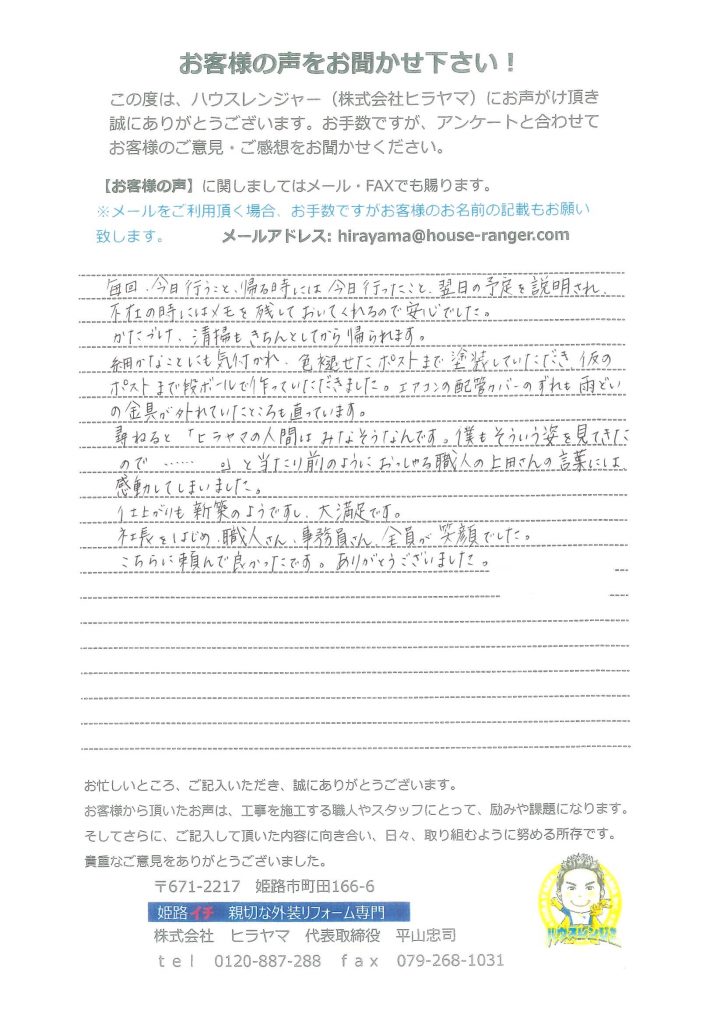 お客様の声をお聞かせ下さい！
この度は、ハウスレンジャー（株式会社ヒラヤマ）にお声がけ頂き
誠にありがとうございます。お手数ですが、アンケートと合わせて
お客様のご意見・ご感想をお聞かせください。
【お客様の声】に関しましてはメール・FAXでも賜ります。
※メールをご利用頂く場合、お手数ですがお客様のお名前の記載もお願い
致します。 メールアドレス: hirayama@house-ranger.com
毎回、今日行うこと、帰る時には今日行ったこと、翌日の予定を説明され、
不在の時にはメモを残しておいてくれるので安心でした。
かたづけ、清掃もきちんとしてから帰られます。
細かなことにも気付かれ、色褪せたポストまで塗装していただき、仮の
ポストまで段ボールで作っていただきました。エアコンの配管カバーのずれも雨どい
の金具が外れていたところも直っています。
尋ねると「ヒラヤマの人間はみなそうなんです。僕もそういう姿を見てきた
ので ‥‥‥ 。」と当たり前のようにおっしゃる職人の上田さんの言葉には
感動してしまいました。
仕上がりも新築のようですし、大満足です。
社長をはじめ、職人さん、事務員さん、全員が笑顔でした。
こちらに頼んで良かったです。ありがとうございました。
お忙しいところ、ご記入いただき、誠にありがとうございます。
お客様から頂いたお声は、工事を施工する職人やスタッフにとって、励みや課題になります。
そしてさらに、ご記入して頂いた内容に向き合い、日々、取り組むように努める所存です。
貴重なご意見をありがとうございました。
〒671-2217 姫路市町田166-6
姫路イチ 親切な外装リフォーム専門
株式会社 ヒラヤマ 代表取締役 平山忠司
ｔｅｌ 0120-887-288 ｆａｘ 079-268-1031
ハウスレンジャー